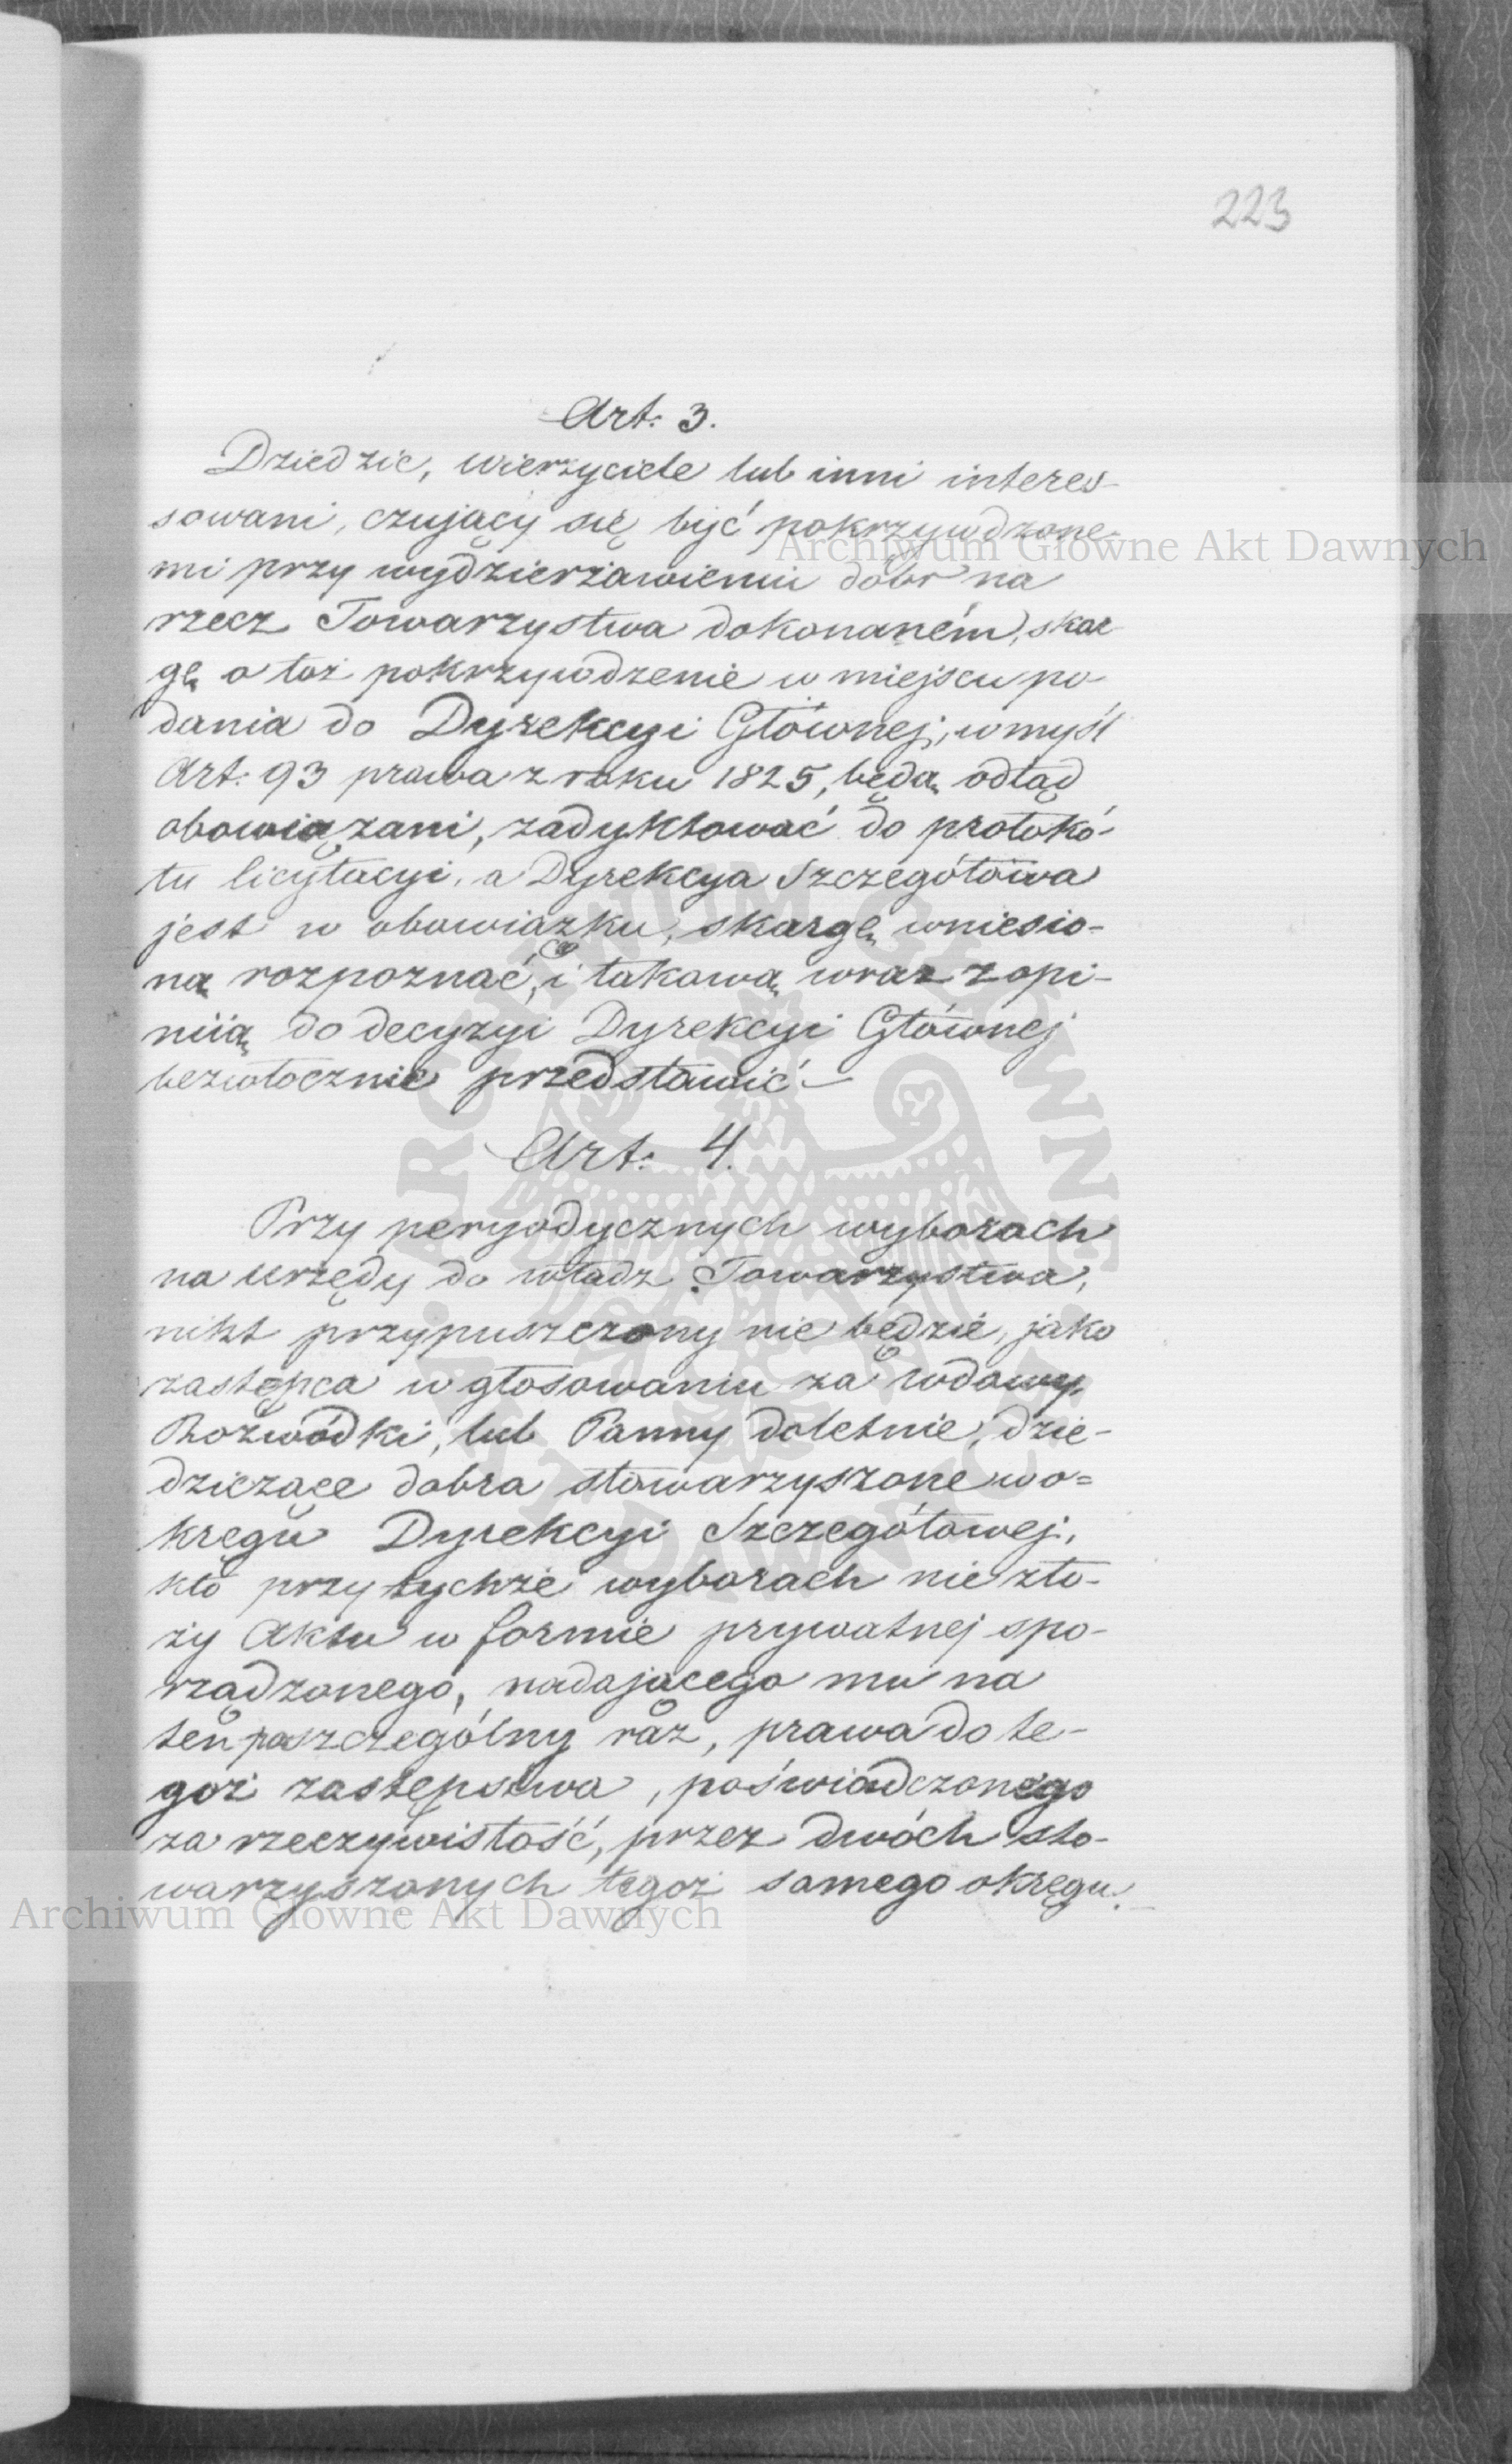 223
Art: 3.
Dziedzic, wierzyciele lub inni interes-
sowani, czujący się być pokrzywdzone-
mi przy wydzierżawieniu dóbr na
rzecz Towarzystwa dokonaném, skar-
gę o toż pokrzywdzenie w miejscu po-
dania do Dyrekcyi Głównej, w myśl
Art: 93 prawa z roku 1825, będą odtąd
obowiązani, zadyktować do protokó-
łu licytacyi, a Dyrekcya Szczegółowa
jest w obowiązku, skargę wniesio-
ną rozpoznać, i takową wraz z opi-
niią do decyzyi Dyrekcyi Głównej
bezwłocznie przedstawić —
Art: 4.
Przy peryodycznych wyborach
na urzędy do władz Towarzystwa,
nikt przypuszczony nie będzie, jako
zastępca w głosowaniu za wdowy,
Rozwódki, lub Panny doletnie, dzie-
dziczące dobra stowarzyszone w o=
kręgu Dyrekcyi Szczegółowej,
kto przy tychże wyborach nie zło-
ży Aktu w formie prywatnej spo-
rządzonego, nadającego mu na
ten poszczególny raz, prawa do te-
goż zastępstwa, poświadczonego
za rzeczywistość, przez dwóch sto-
warzyszonych tegoż samego okręgu. —
Archiwum Główne Akt Dawnych
Archiwum Główne Akt Dawnych
ARCHIWUM GŁÓWNE AKT DAWNYCH